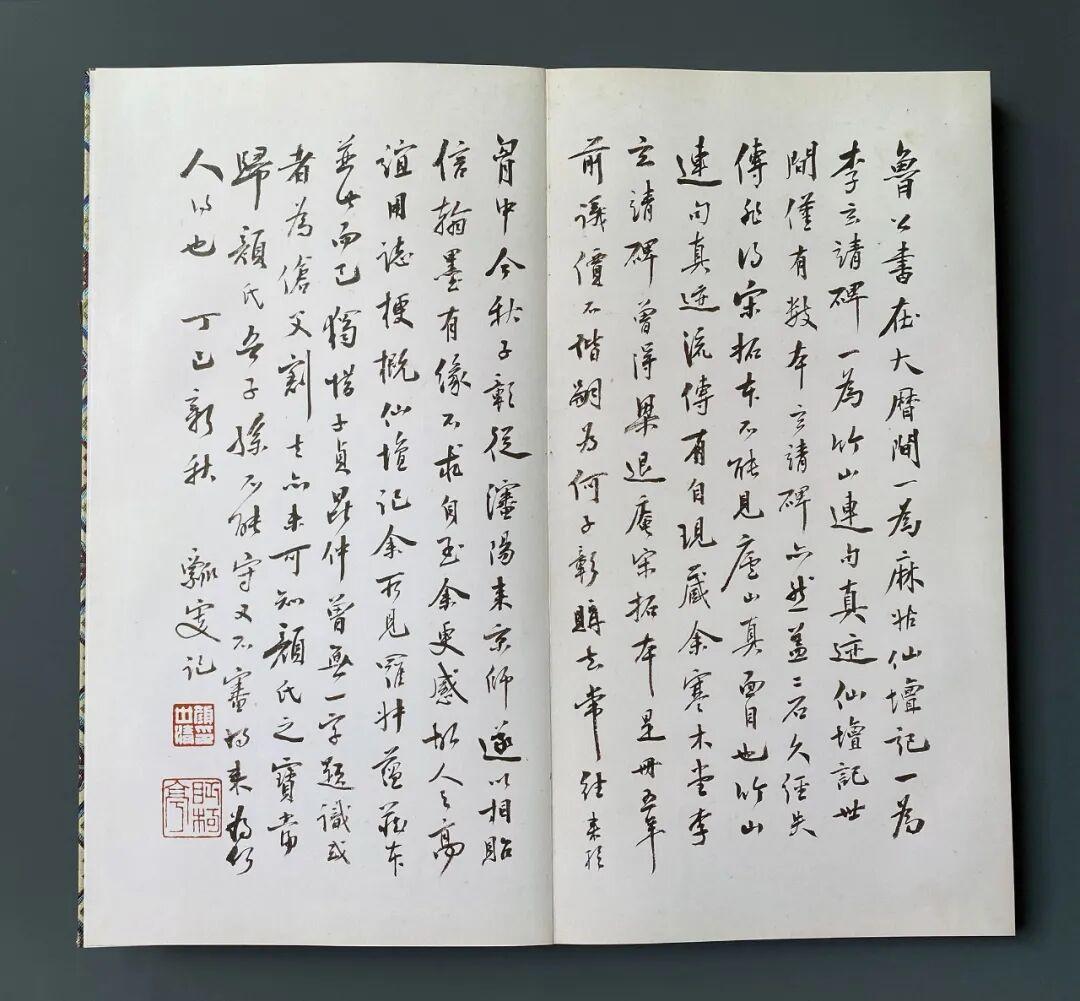 魯公書在大曆間一為麻姑仙壇記一為
李玄靖碑一為竹山連句真迹仙壇記世
間僅有數本玄靖碑亦然蓋二石久經失
傳非得宋拓本不能見廬山真面目也竹山
連句真迹流傳有自現藏余寒木堂李
玄靖碑曾得梁退庵宋拓本是冊五年
前議價不諧嗣為何子彰購去常往來於
胷中今秋子彰從瀋陽來京師遂以相貽
信翰墨有緣不求自至余更感故人之高
誼用誌梗概仙壇記余所見羅叔蘊藏本
並此而已獨惜子貞昆仲曾無一字題識或
者為傖父割去亦未可知顏氏之寶當
歸顏氏吾子孫不能守又不審將來為何
人得也 丁巳新秋 瓢叟記